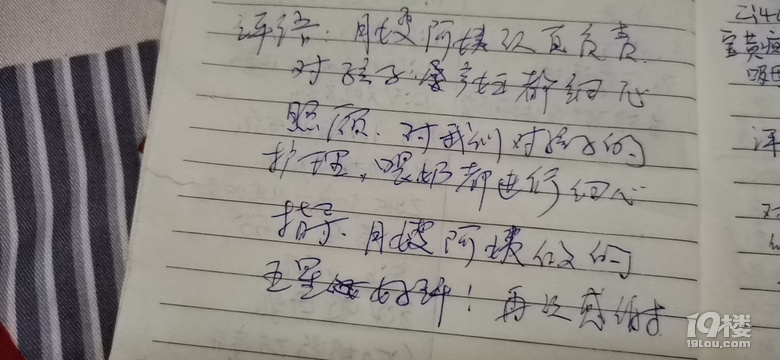 评语：月嫂阿姨认真负责
对孩子、产妇都细心
照顾．对我们对孩子的
护理、喂奶都进行细心
指导．月嫂阿姨做的
五星好评！再次感谢
19楼
19lou.com